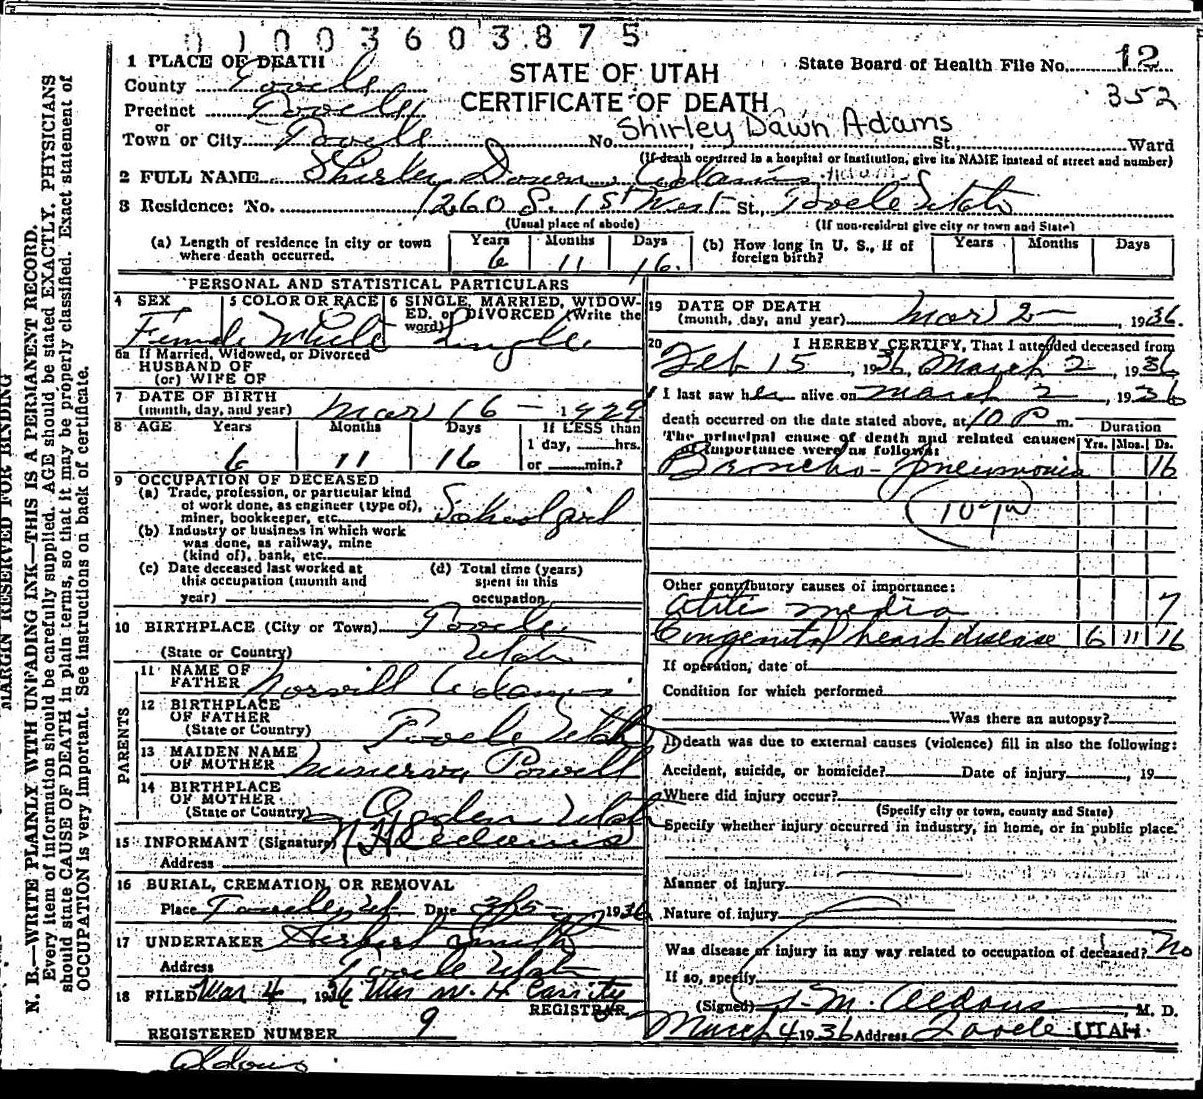 01003603875
STATE OF UTAH
CERTIFICATE OF DEATH
State Board of Health File No. 12
352
1 PLACE OF DEATH
County Tooele
Precinct Tooele
or
Town or City Tooele No. Shirley Dawn Adams St., Ward
(If death occurred in a hospital or institution, give its NAME instead of street and number)
2 FULL NAME Shirley Dawn Adams Adams
3 Residence: No. 260 S. 1st West St., Tooele Utah
(Usual place of abode) (If non-resident give city or town and State)
(a) Length of residence in city or town where death occurred. Years 6 Months 11 Days 16. (b) How long in U. S., if of foreign birth? Years Months Days
PERSONAL AND STATISTICAL PARTICULARS
4 SEX 5 COLOR OR RACE 6 SINGLE, MARRIED, WIDOWED. or DIVORCED (Write the word)
Female White Single
6a If Married, Widowed, or Divorced
HUSBAND OF
(or) WIFE OF
7 DATE OF BIRTH
(month, day, and year) Mar 16 - 1929
8 AGE Years Months Days If LESS than
1 day, hrs.
6 11 16 or min.?
9 OCCUPATION OF DECEASED
(a) Trade, profession, or particular kind
of work done, as engineer (type of),
miner, bookkeeper, etc. School girl
(b) Industry or business in which work
was done, as railway, mine
(kind of), bank, etc.
(c) Date deceased last worked at
this occupation (month and
year)
(d) Total time (years)
spent in this
occupation
10 BIRTHPLACE (City or Town) Tooele
(State or Country) Utah
PARENTS
11 NAME OF
FATHER Norvill Adams
12 BIRTHPLACE
OF FATHER
(State or Country) Tooele Utah
13 MAIDEN NAME
OF MOTHER Minerva Powell
14 BIRTHPLACE
OF MOTHER
(State or Country) Ogden Utah
15 INFORMANT (Signature) N H Adams
Address
16 BURIAL, CREMATION, OR REMOVAL
Place Tooele, Ut. Date 3/5- 1936
17 UNDERTAKER Herbert Smith
Address Tooele Utah
18 FILED Mar 4, 1936 Mrs W. H. Cassity
REGISTRAR.
REGISTERED NUMBER 9
Aldous
19 DATE OF DEATH
(month, day, and year) Mar 2- , 1936.
20 I HEREBY CERTIFY, That I attended deceased from
Feb 15, 1936, March 2, 1936
I last saw her alive on March 2, 1936
death occurred on the date stated above, at 10 P m.
Duration
The principal cause of death and related causes
of importance were as follows: Yrs. Mos. Ds.
Broncho-pneumonia 16
Other contributory causes of importance:
Otitis media 7
Congenital heart disease 6 11 16
If operation, date of
Condition for which performed
Was there an autopsy?
If death was due to external causes (violence) fill in also the following:
Accident, suicide, or homicide? Date of injury , 19
Where did injury occur?
(Specify city or town, county and State)
Specify whether injury occurred in industry, in home, or in public place.
Manner of injury
Nature of injury
Was disease or injury in any way related to occupation of deceased? No
If so, specify
(Signed) J. M. Aldous, M. D.
March 4 1936 Address Tooele UTAH
MARGIN RESERVED FOR BINDING
N. B.—WRITE PLAINLY WITH UNFADING INK—THIS IS A PERMANENT RECORD.
Every item of information should be carefully supplied. AGE should be stated EXACTLY. PHYSICIANS
should state CAUSE OF DEATH in plain terms, so that it may be properly classified. Exact statement of
OCCUPATION is very important. See instructions on back of certificate.